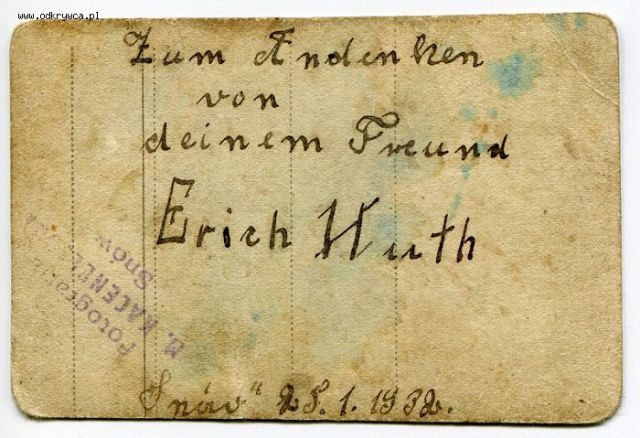 www.odkrywca.pl
Zum Andenken
von
deinem Freund
Erich Huth
Fotografia
Snów
Snów" 28. 1. 1932.